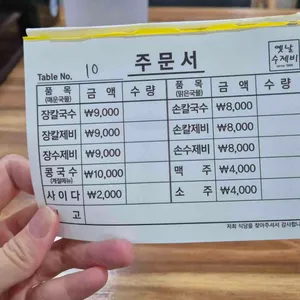 옛날
수제비
since 1986
주문서
Table No. 10
품 목 (매운국물) 금 액 수 량 품 목 (맑은국물) 금 액 수 량
장칼국수 ₩9,000 손칼국수 ₩8,000
장칼제비 ₩9,000 손칼제비 ₩8,000
장수제비 ₩9,000 손수제비 ₩8,000
콩국수 (계절메뉴) ₩10,000 맥 주 ₩4,000
사이다 ₩2,000 소 주 ₩4,000
고
저희 식당을 찾아주셔서 감사합니다